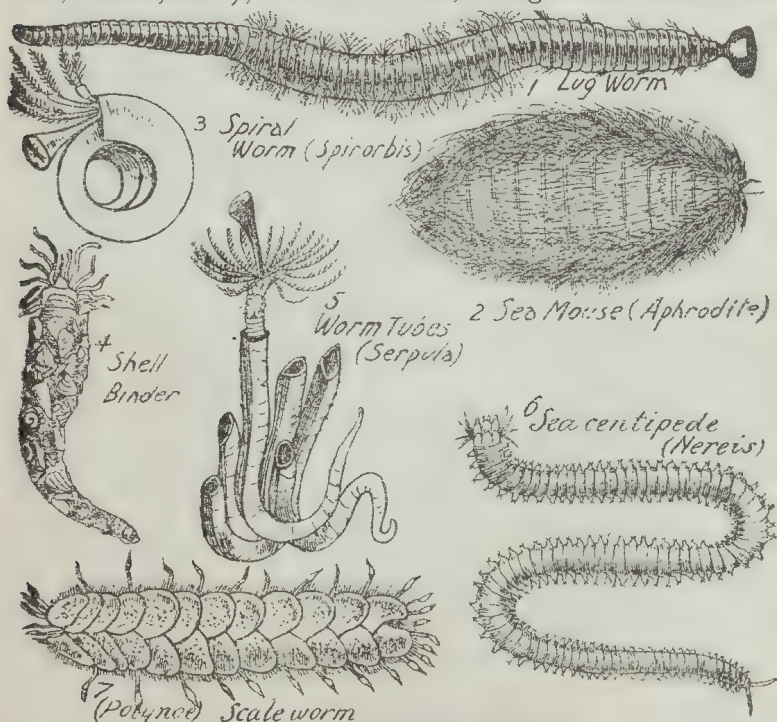 1 Lug Worm
3 Spiral
Worm (Spirorbis)
2 Sea Mouse (Aphrodite)
4
Shell
Binder
5
Worm Tubes
(Serpula)
6 Sea centipede
(Nereis)
7
(Polynoe) Scale worm